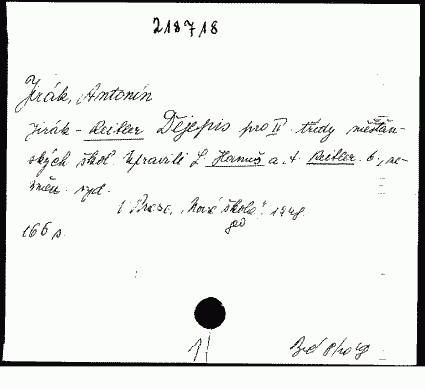 218718
Jirák, Antonín
Jirák - Reitler Dějepis pro II. třídy měšťan-
ských škol. Upravili L. Horniš a A. Reitler. 6., ne-
změn. vyd.
V Praze, "Nová škola".
166 s.